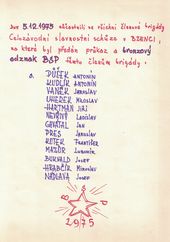 Dne 5.12.1975 zúčastnili se všichni členové brigády
Celozávodní slavnostní schůze v BZENCI,
na které byl předán průkaz a bronzový
odznak BSP těmto členům brigády.
s. PŮČEK ANTONÍN
KUDLÍK ANTONÍN
VANĚK Jaroslav
UHEREK Miloslav
HARTMAN Jiří
NEVŘIVÝ Ladislav
CHVÁTAL Jan
PRES Jaroslav
KOTEK František
MAZŮR Lubomír
BUKVALD Josef
HRABČÍK Miroslav
NÁDLAVA Josef
B S P
1975